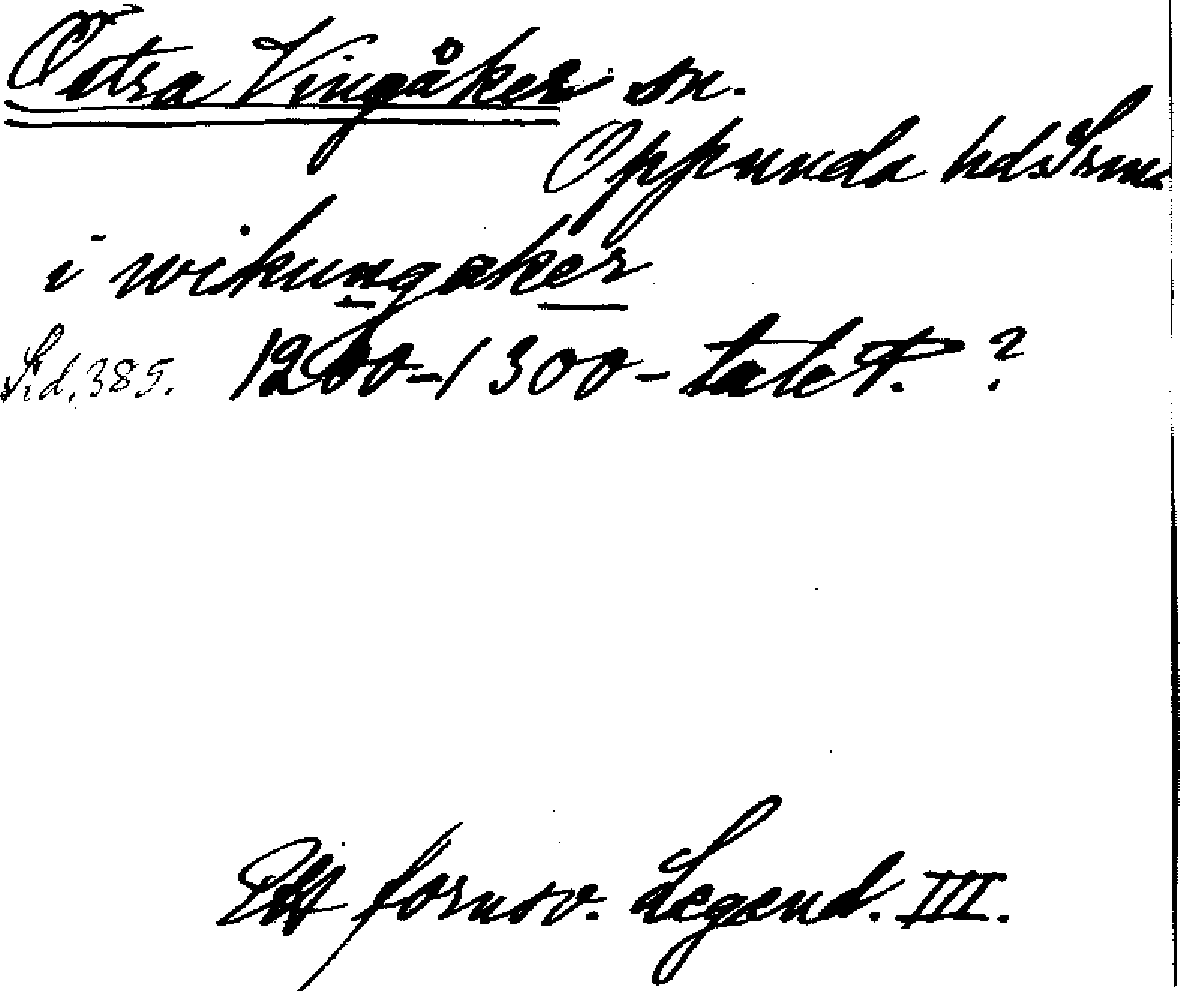 Östra Vingåker sn.
Oppunda hd. Srml.
i wikungaker
Sid. 385. 1200-1300-talet. ?
Ett fornsv. Legend. III.